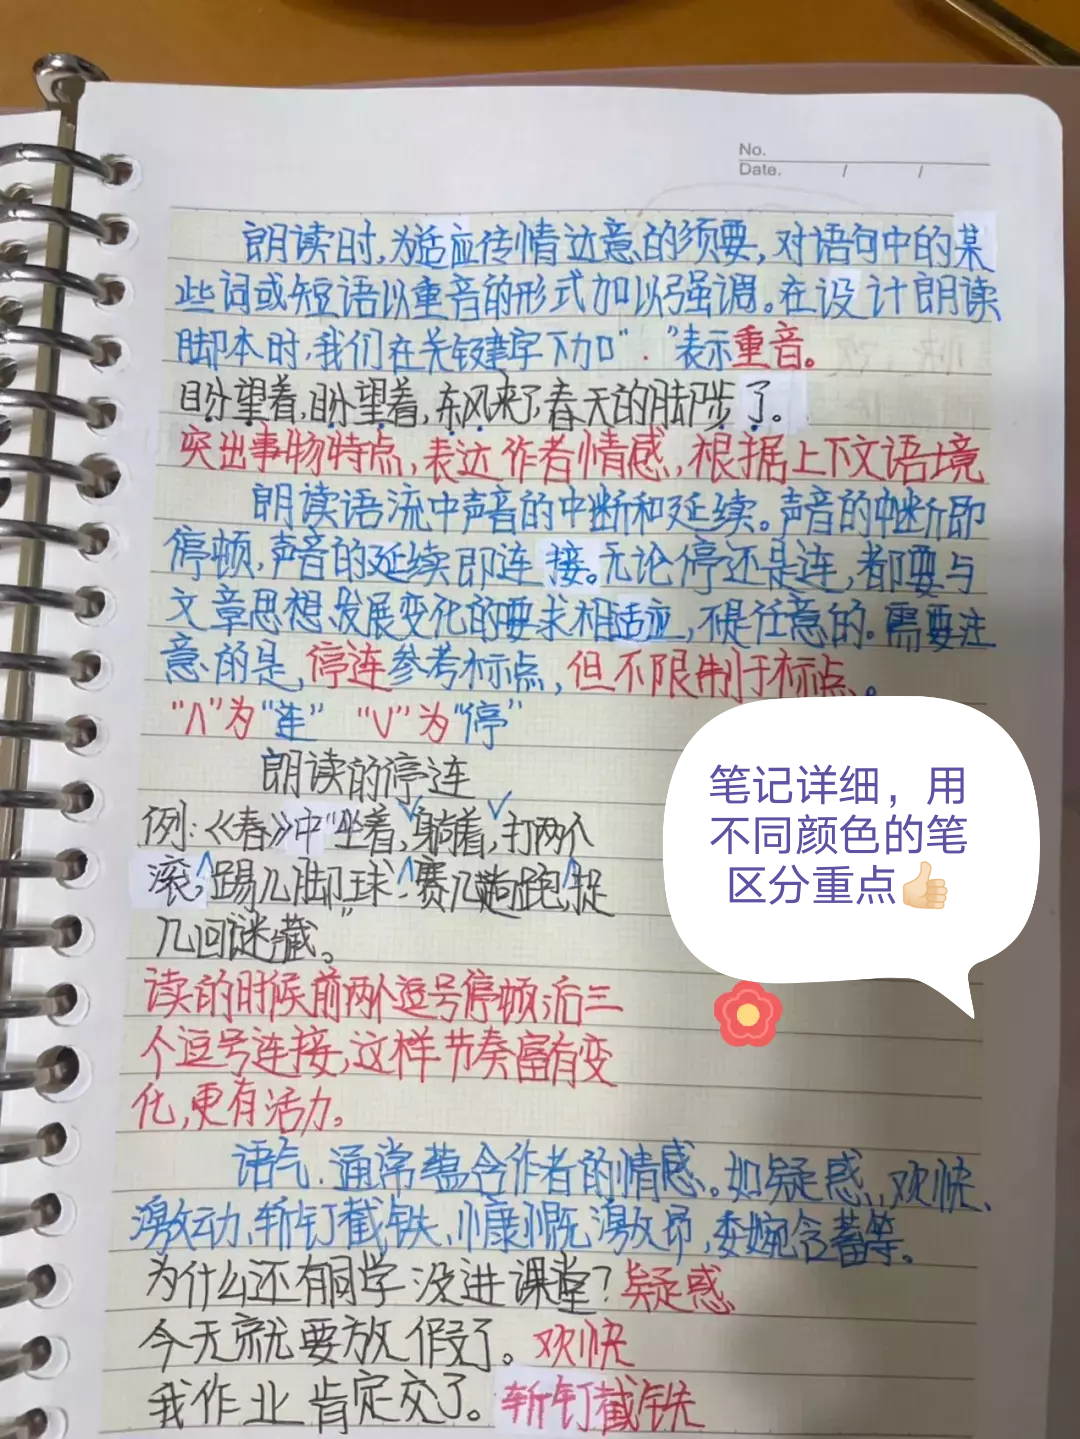 No.
Date. / /
朗读时,为适应传情达意的须要,对语句中的某
些词或短语以重音的形式加以强调。在设计朗读
脚本时,我们在关键字下加“.”表示重音。
盼望着,盼望着,东风来了,春天的脚步了。
突出事物特点,表达作者情感,根据上下文语境
朗读语流中声音的中断和延续。声音的中断即
停顿,声音的延续即连接。无论停还是连,都要与
文章思想、发展变化的要求相适应,不是任意的。需要注
意的是,停连参考标点,但不限制于标点。
“Λ”为“连” “V”为“停”
朗读的停连
例:《春》中“坐着,躺着,打两个
滚,踢几脚球,赛几趟跑,捉
几回迷藏。”
读的时候前两个逗号停顿;后三
个逗号连接,这样节奏富有变
化,更有活力。
语气.通常蕴含作者的情感。如疑惑、欢快、
激动、斩钉截铁、慷慨激昂,委婉含蓄等。
为什么还有同学没进课堂?疑惑
今天就要放假了。欢快
我作业肯定交了。斩钉截铁
笔记详细，用
不同颜色的笔
区分重点👍🏻